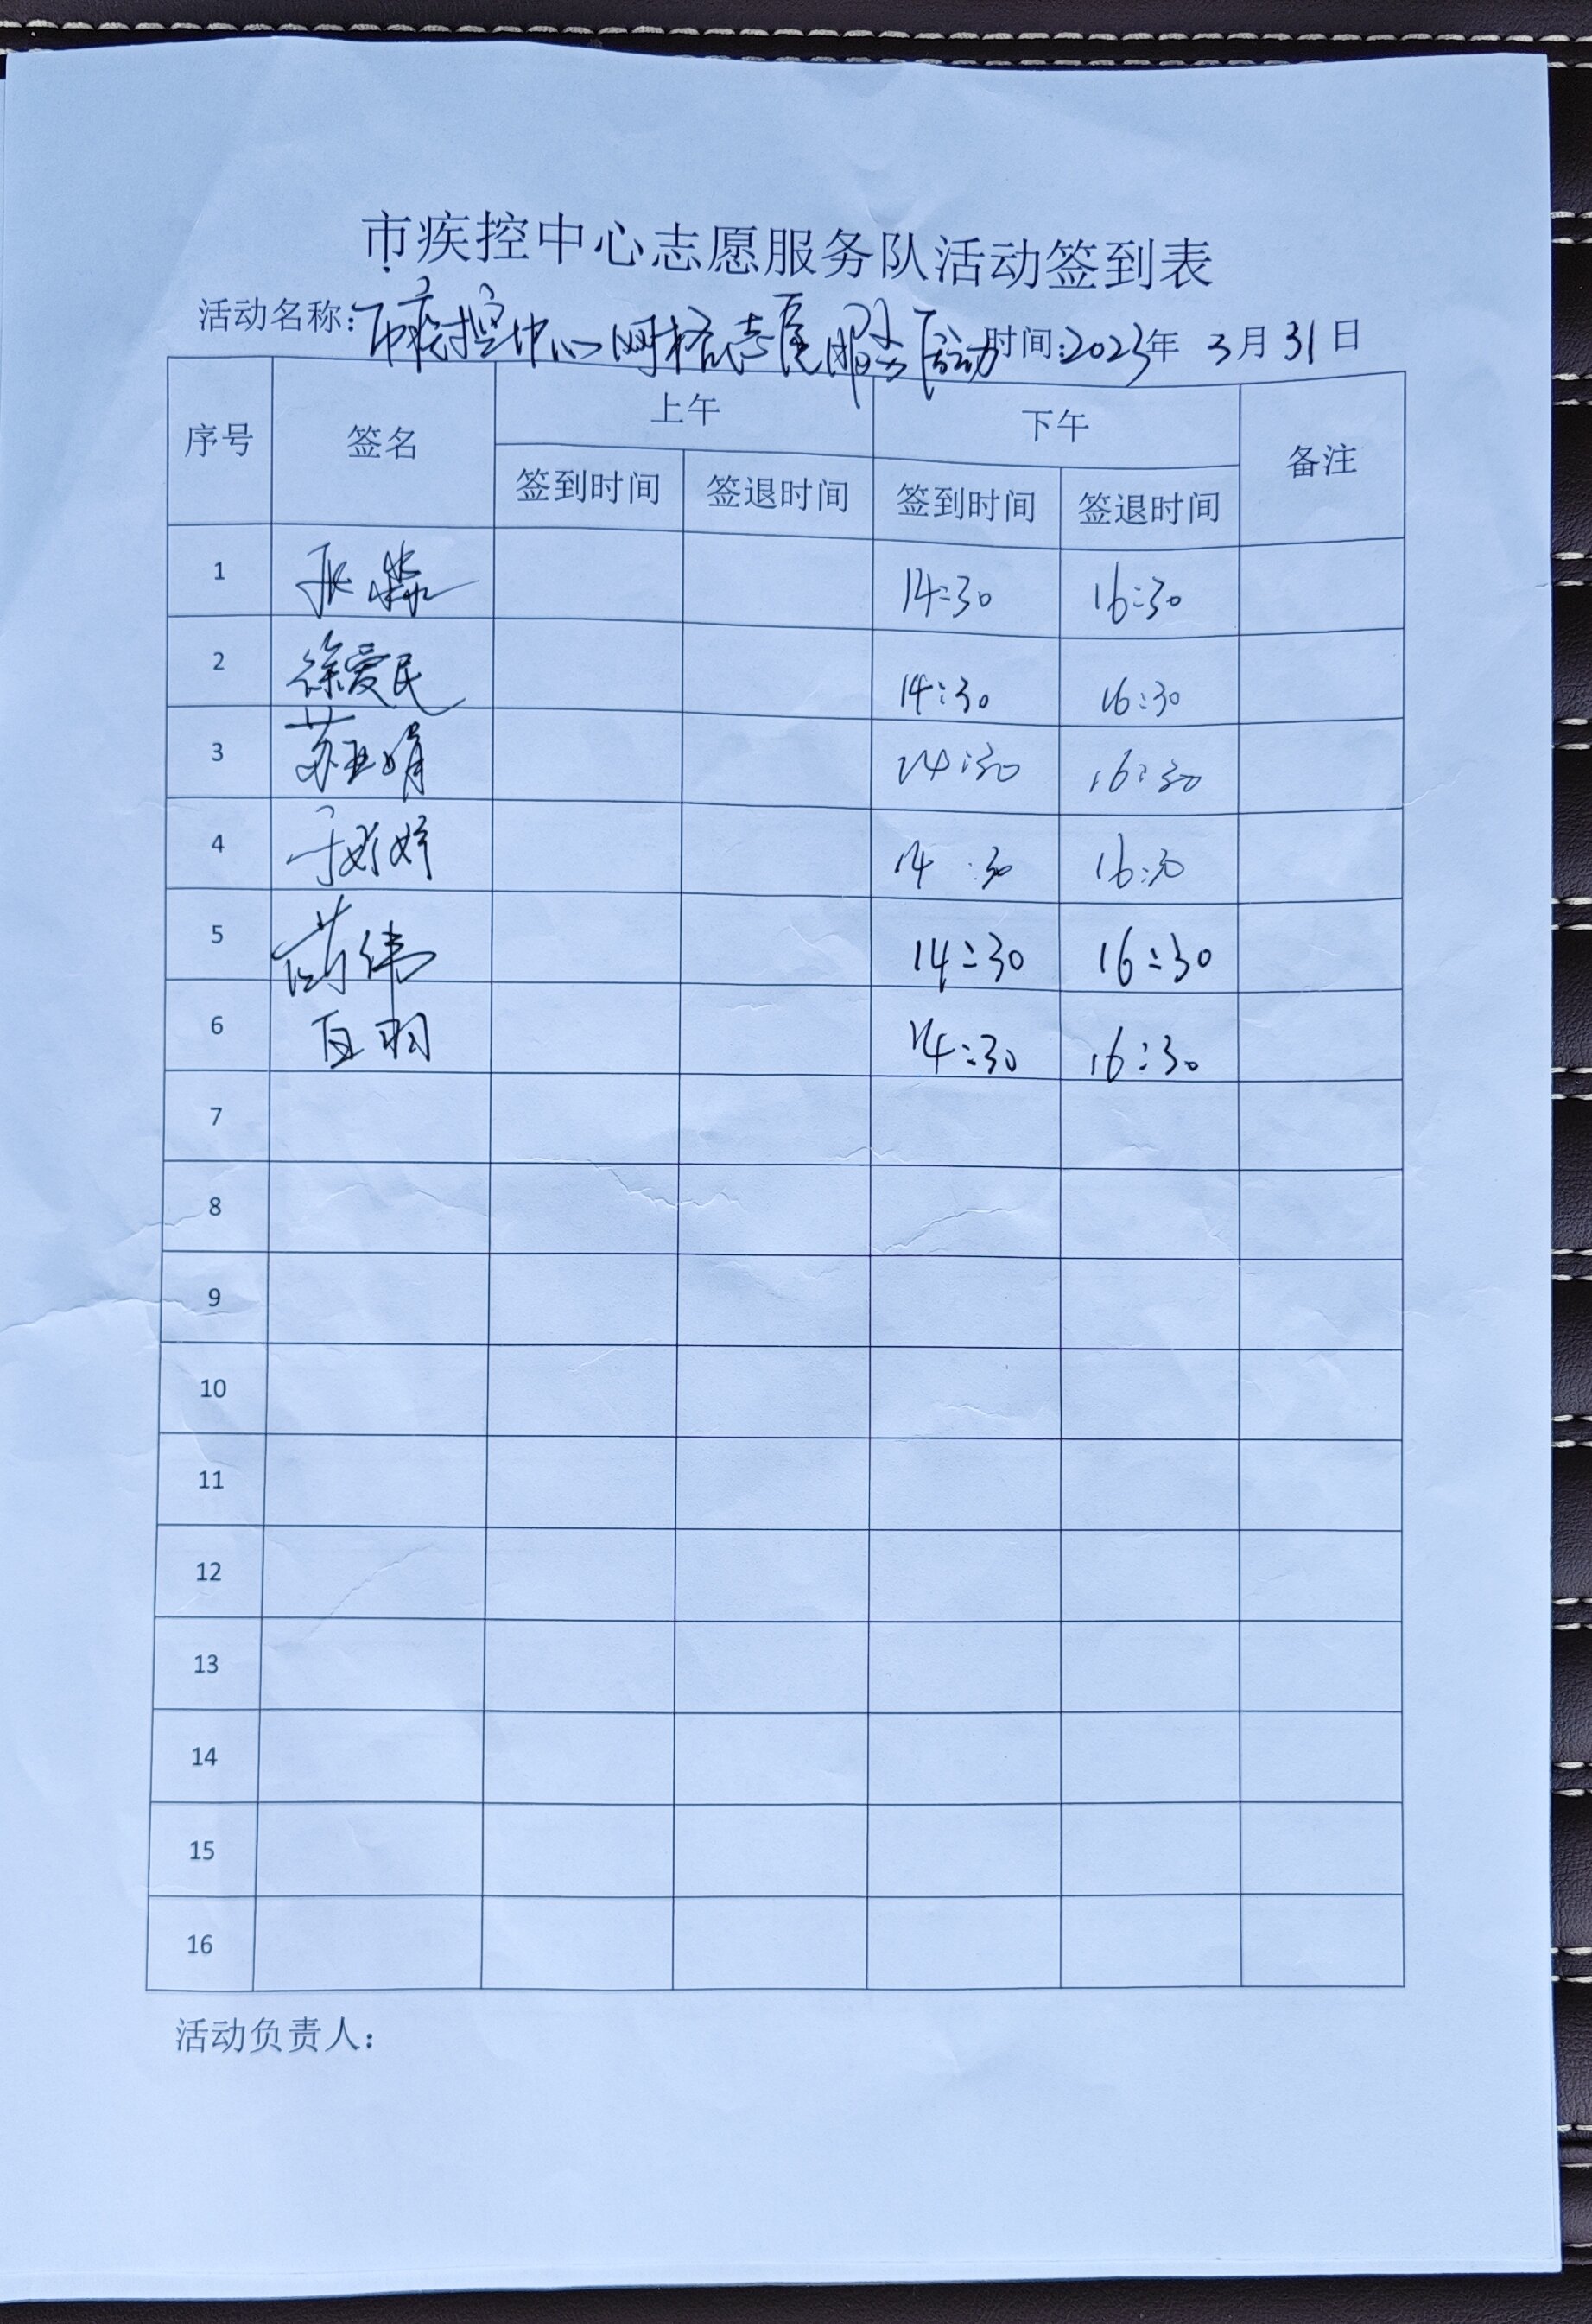 市疾控中心志愿服务队活动签到表
活动名称:市疾控中心网格志愿服务活动 时间:2023年 3月31日
序号 签名 上午 下午 备注
签到时间 签退时间 签到时间 签退时间
1 14:30 16:30
2 徐爱民 14:30 16:30
3 苏亚娟 14:30 16:30
4 14:30 16:30
5 14:30 16:30
6 14:30 16:30
7
8
9
10
11
12
13
14
15
16
活动负责人: